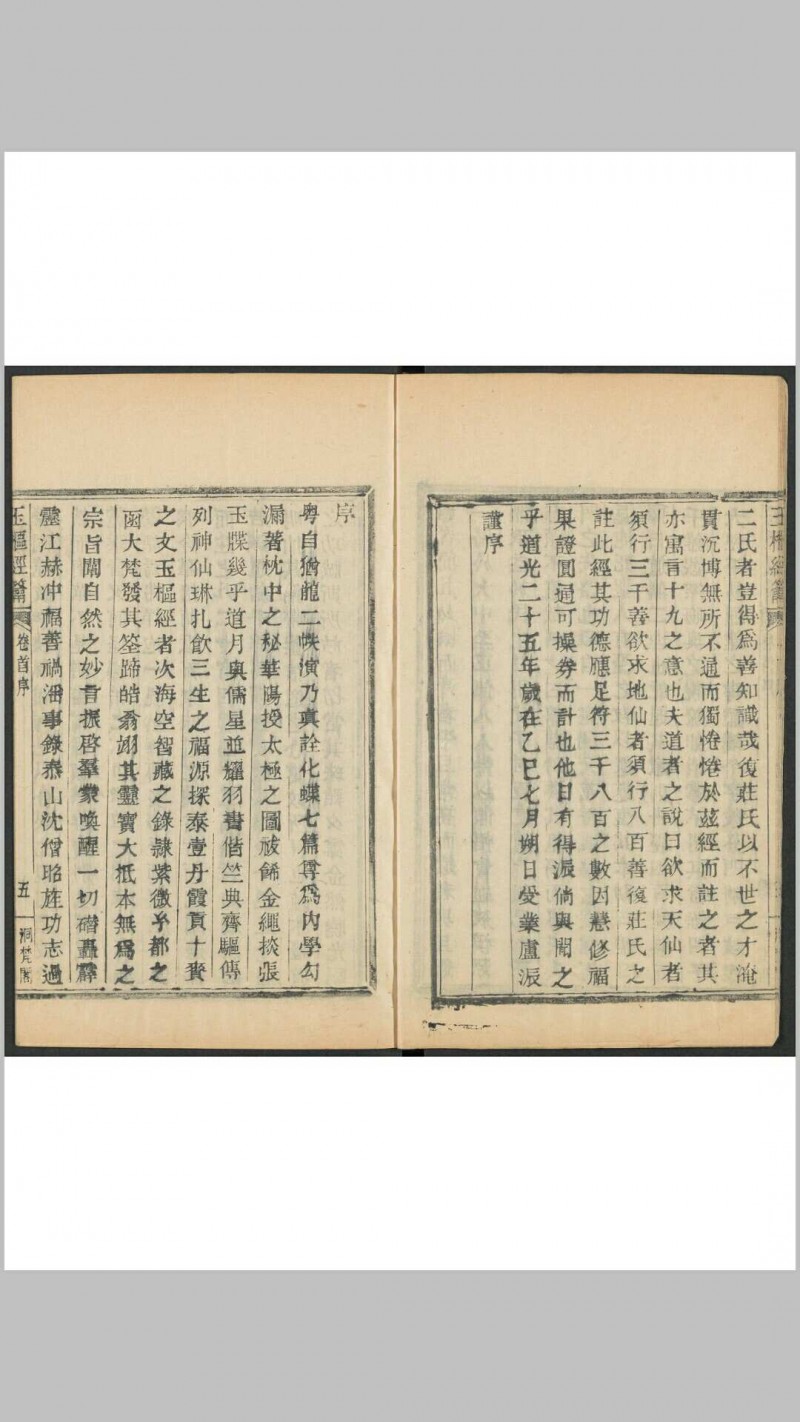 二氏者豈得為善知識哉復莊氏以不世之才淹
貫沉博無所不通而獨惓惓於茲經而註之者其
亦寓言十九之意也夫道者之說曰欲求天仙者
須行三千善欲求地仙者須行八百善復莊氏之
註此經其功德應足符三千八百之數因慧修福
果證圓通可操券而計也他日有得滬倘與聞之
乎道光二十五年歲在乙巳七月朔日受業盧滬
謹序
序
粵自猶龍二帙演乃真詮化蝶七篇尊為內學勾
漏著枕中之秘華陽授太極之圖祓餙金繩掞張
玉牒幾乎道月與儒星並耀羽書偕竺典齊驅傳
列神仙琳札飲三生之福源探泰壹丹霞貢十賚
之文玉樞經者次海空智藏之錄隷紫微予都之
函大梵發其筌蹄皓翁翊其靈寶大抵本無為之
宗旨闡自然之妙言振啓羣蒙喚醒一切礚轟霹
靂江赫冲福善禍潘事錄泰山沈僧昭旌功志過
玉樞經籥
卷首序
五
洞梵閣